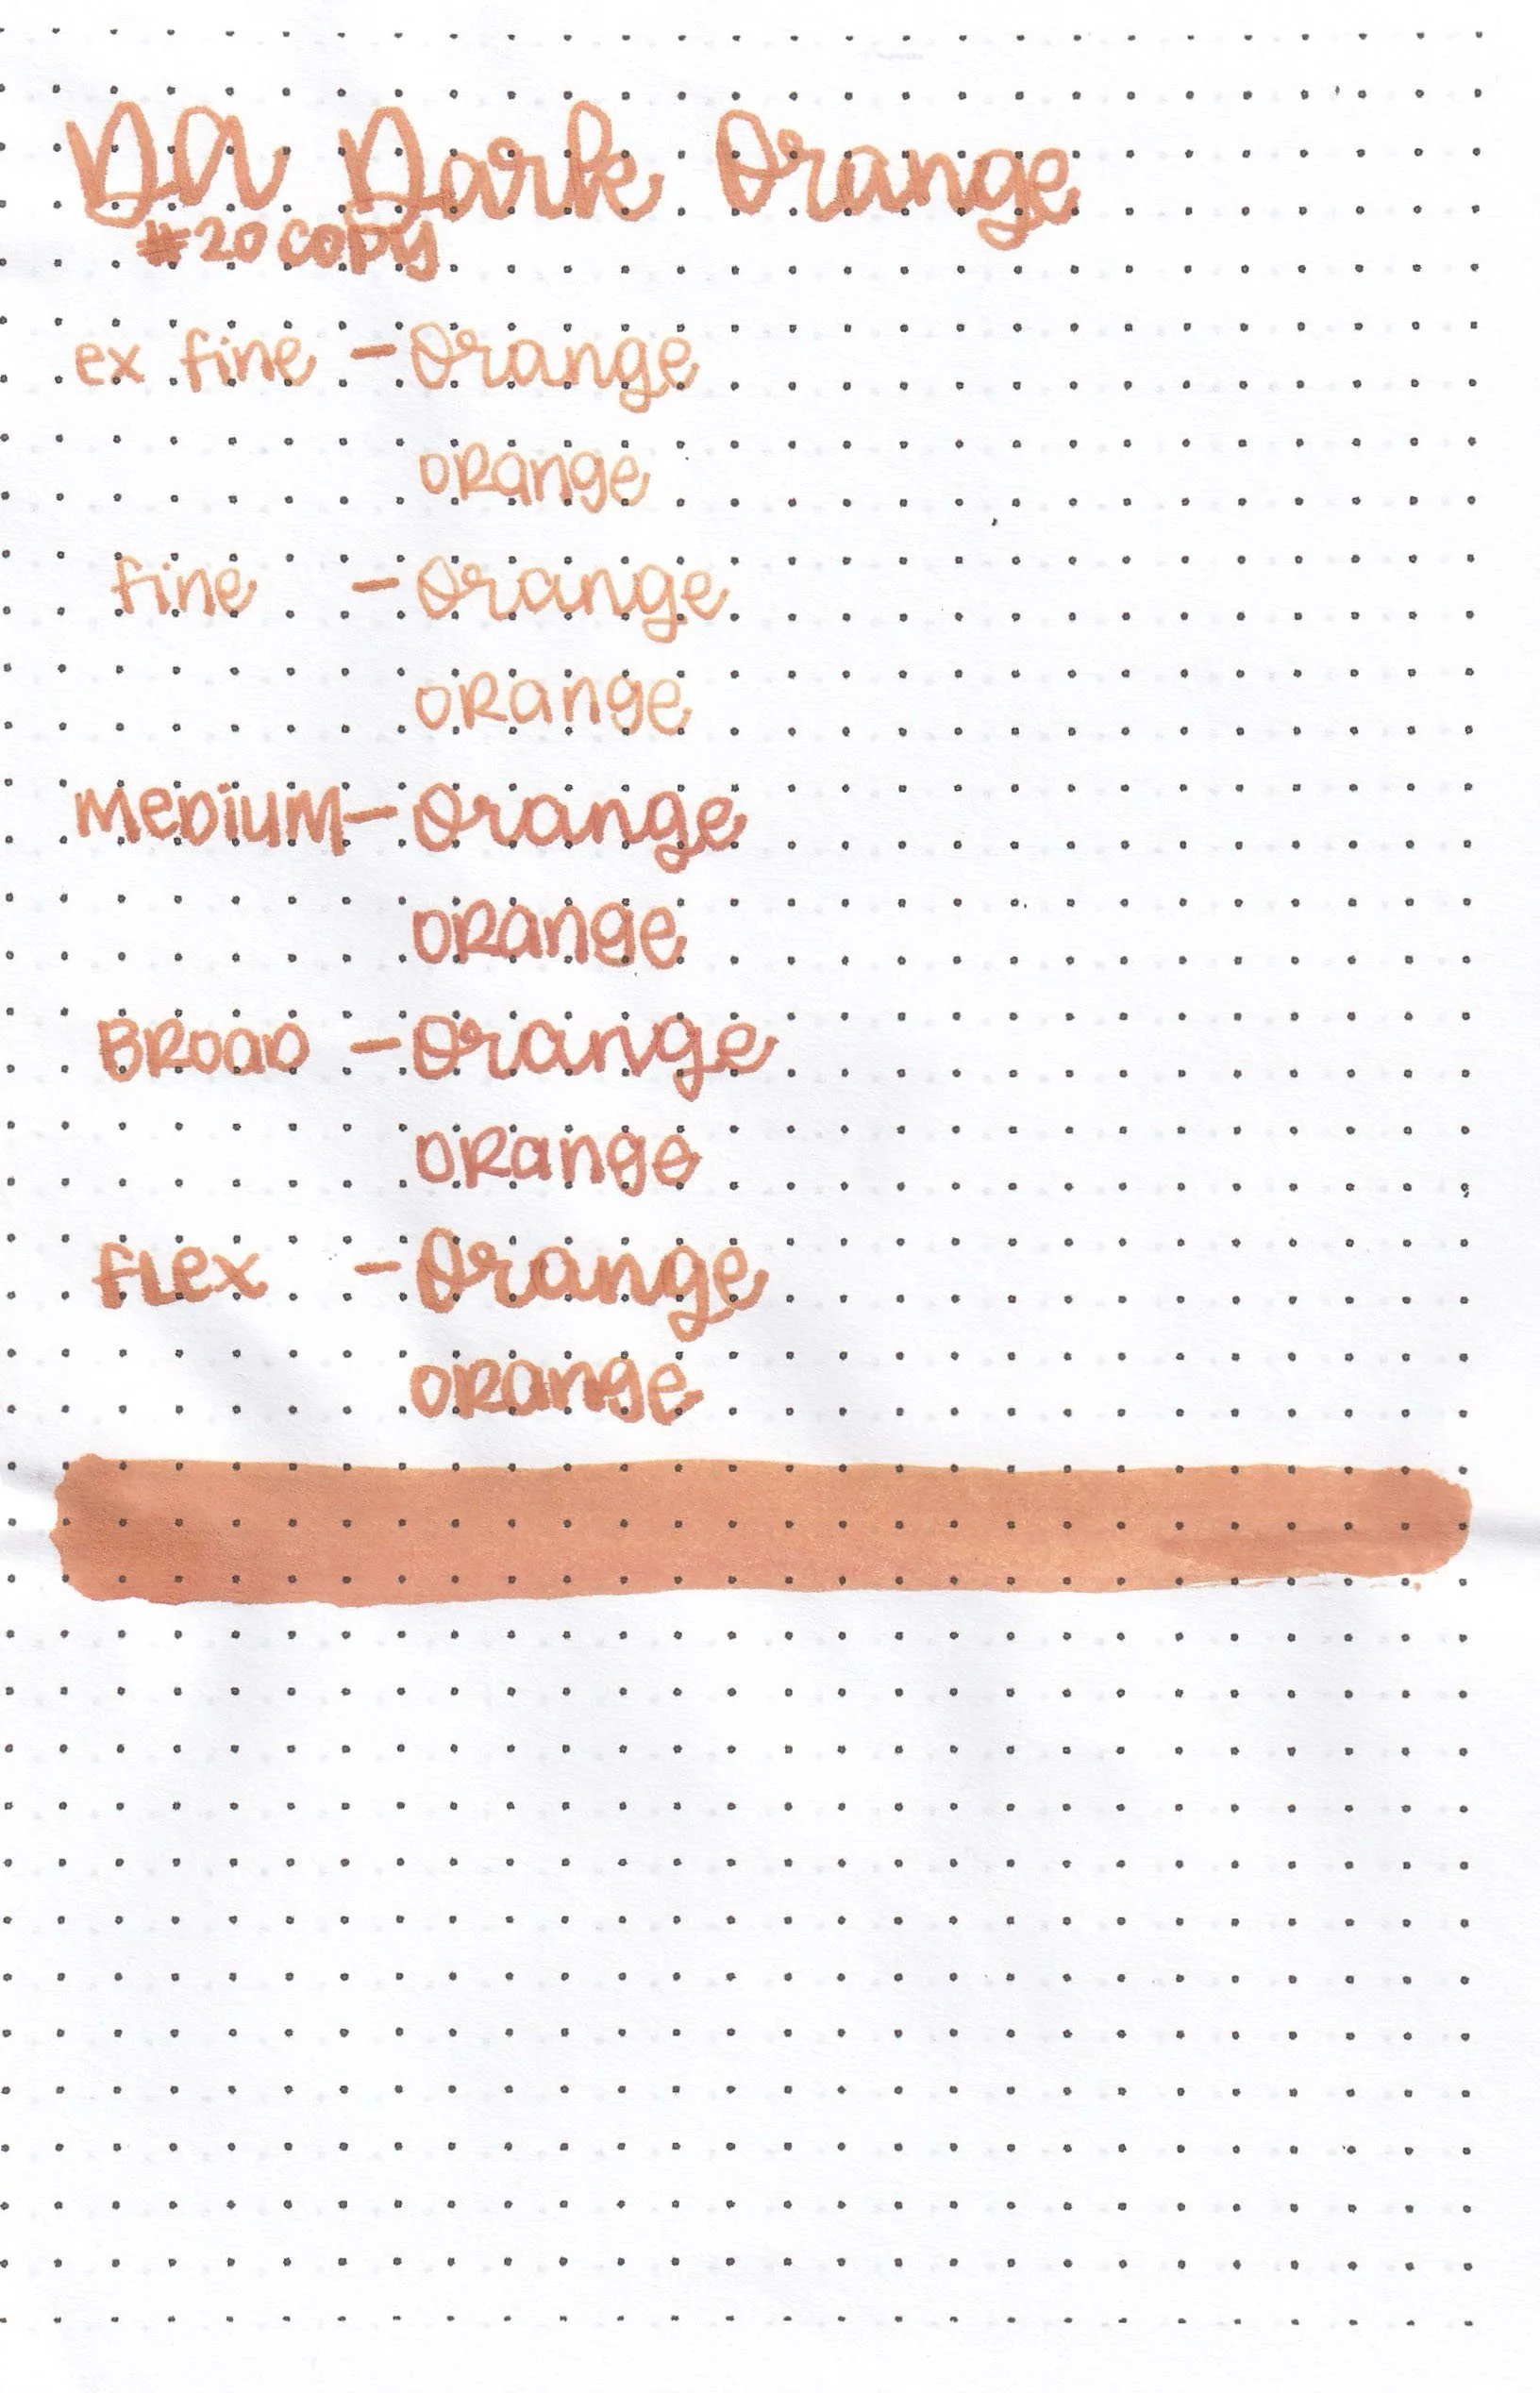 DA Dark Orange
#20 copy
ex fine - Orange
orange
fine - Orange
orange
Medium - Orange
orange
Broad - Orange
orange
flex - Orange
orange